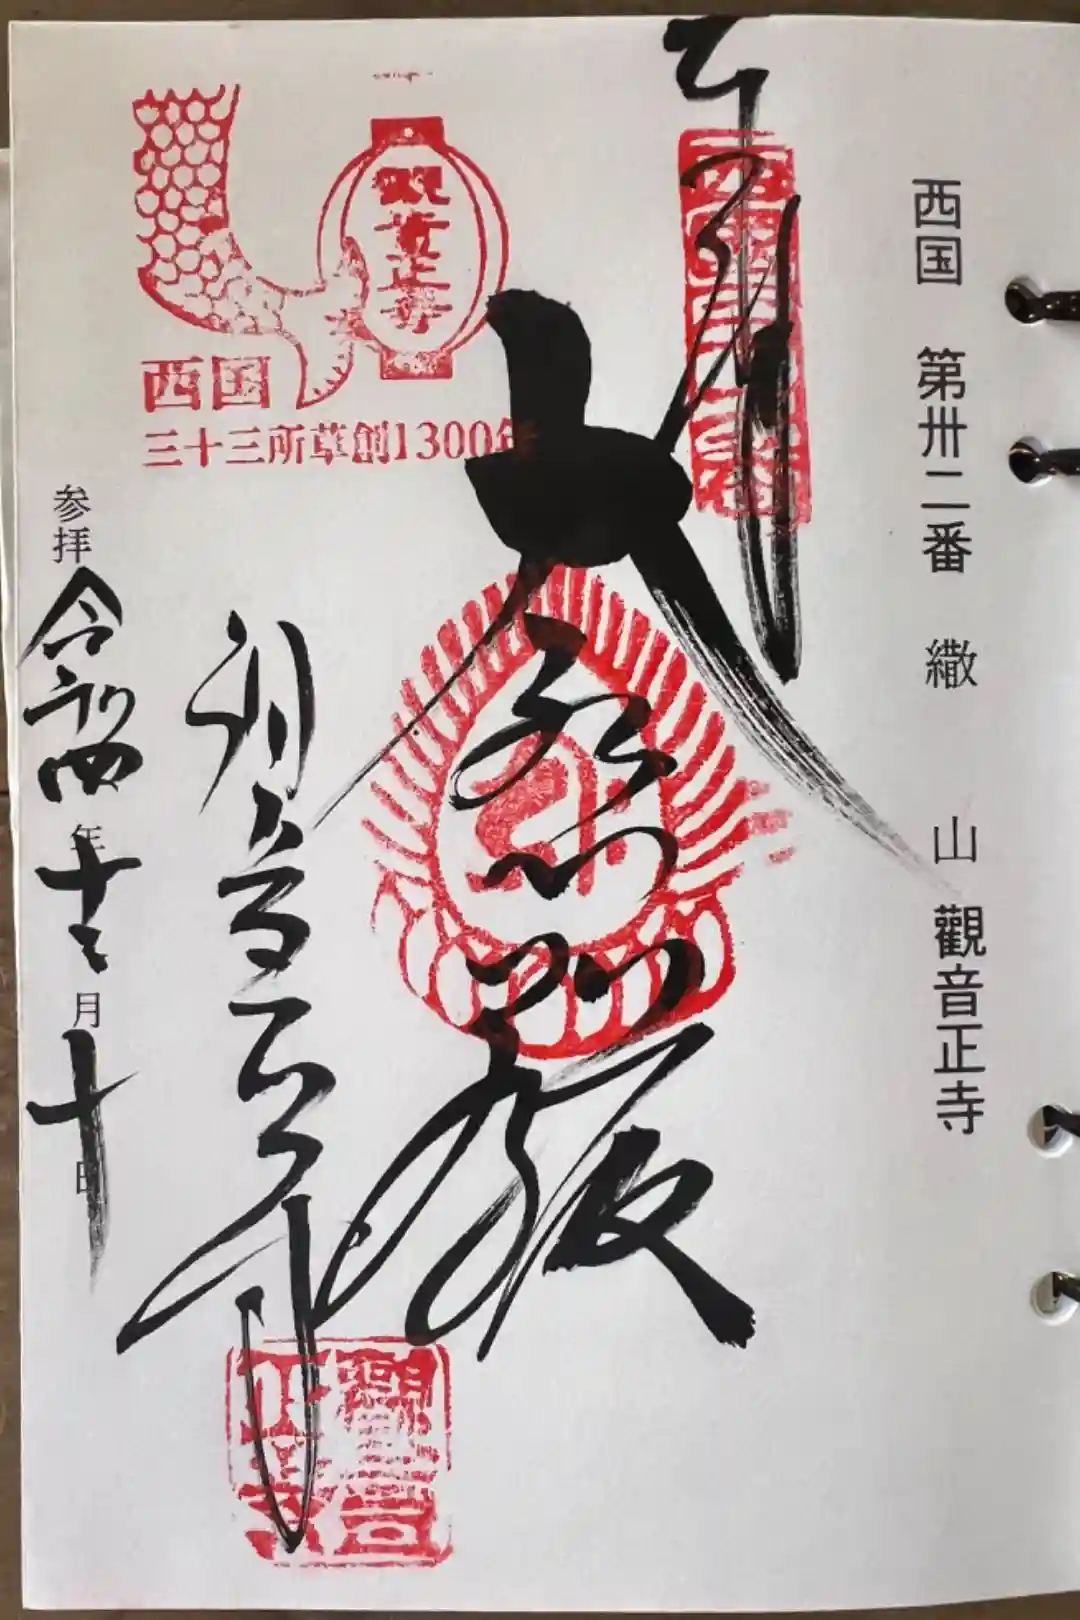 西国 第卅二番 繖 山 觀音正寺
奉拝
西国三十二番
大慈殿
觀音正寺
観音正寺
西国
三十三所草創1300年
参拝 令和四年十二月十日